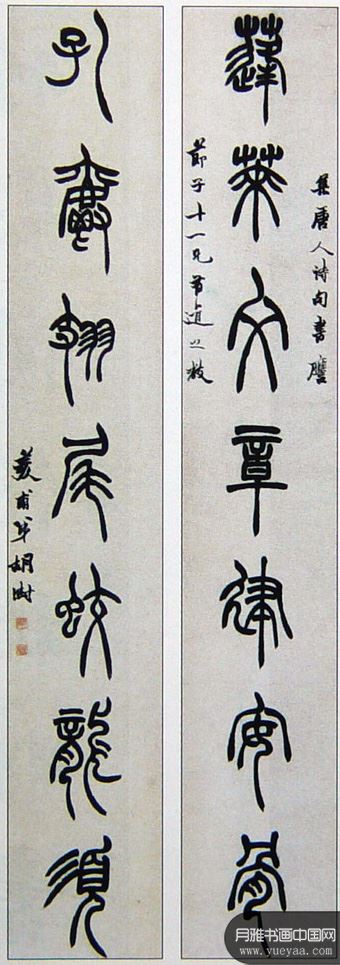 蓬萊文章建安骨
集唐人詩句書譍
節子十一兄有道正教
孔鸞翅尾蛟龍須
荄甫弟胡澍
月雅书画中国网
www.yueyaa.com